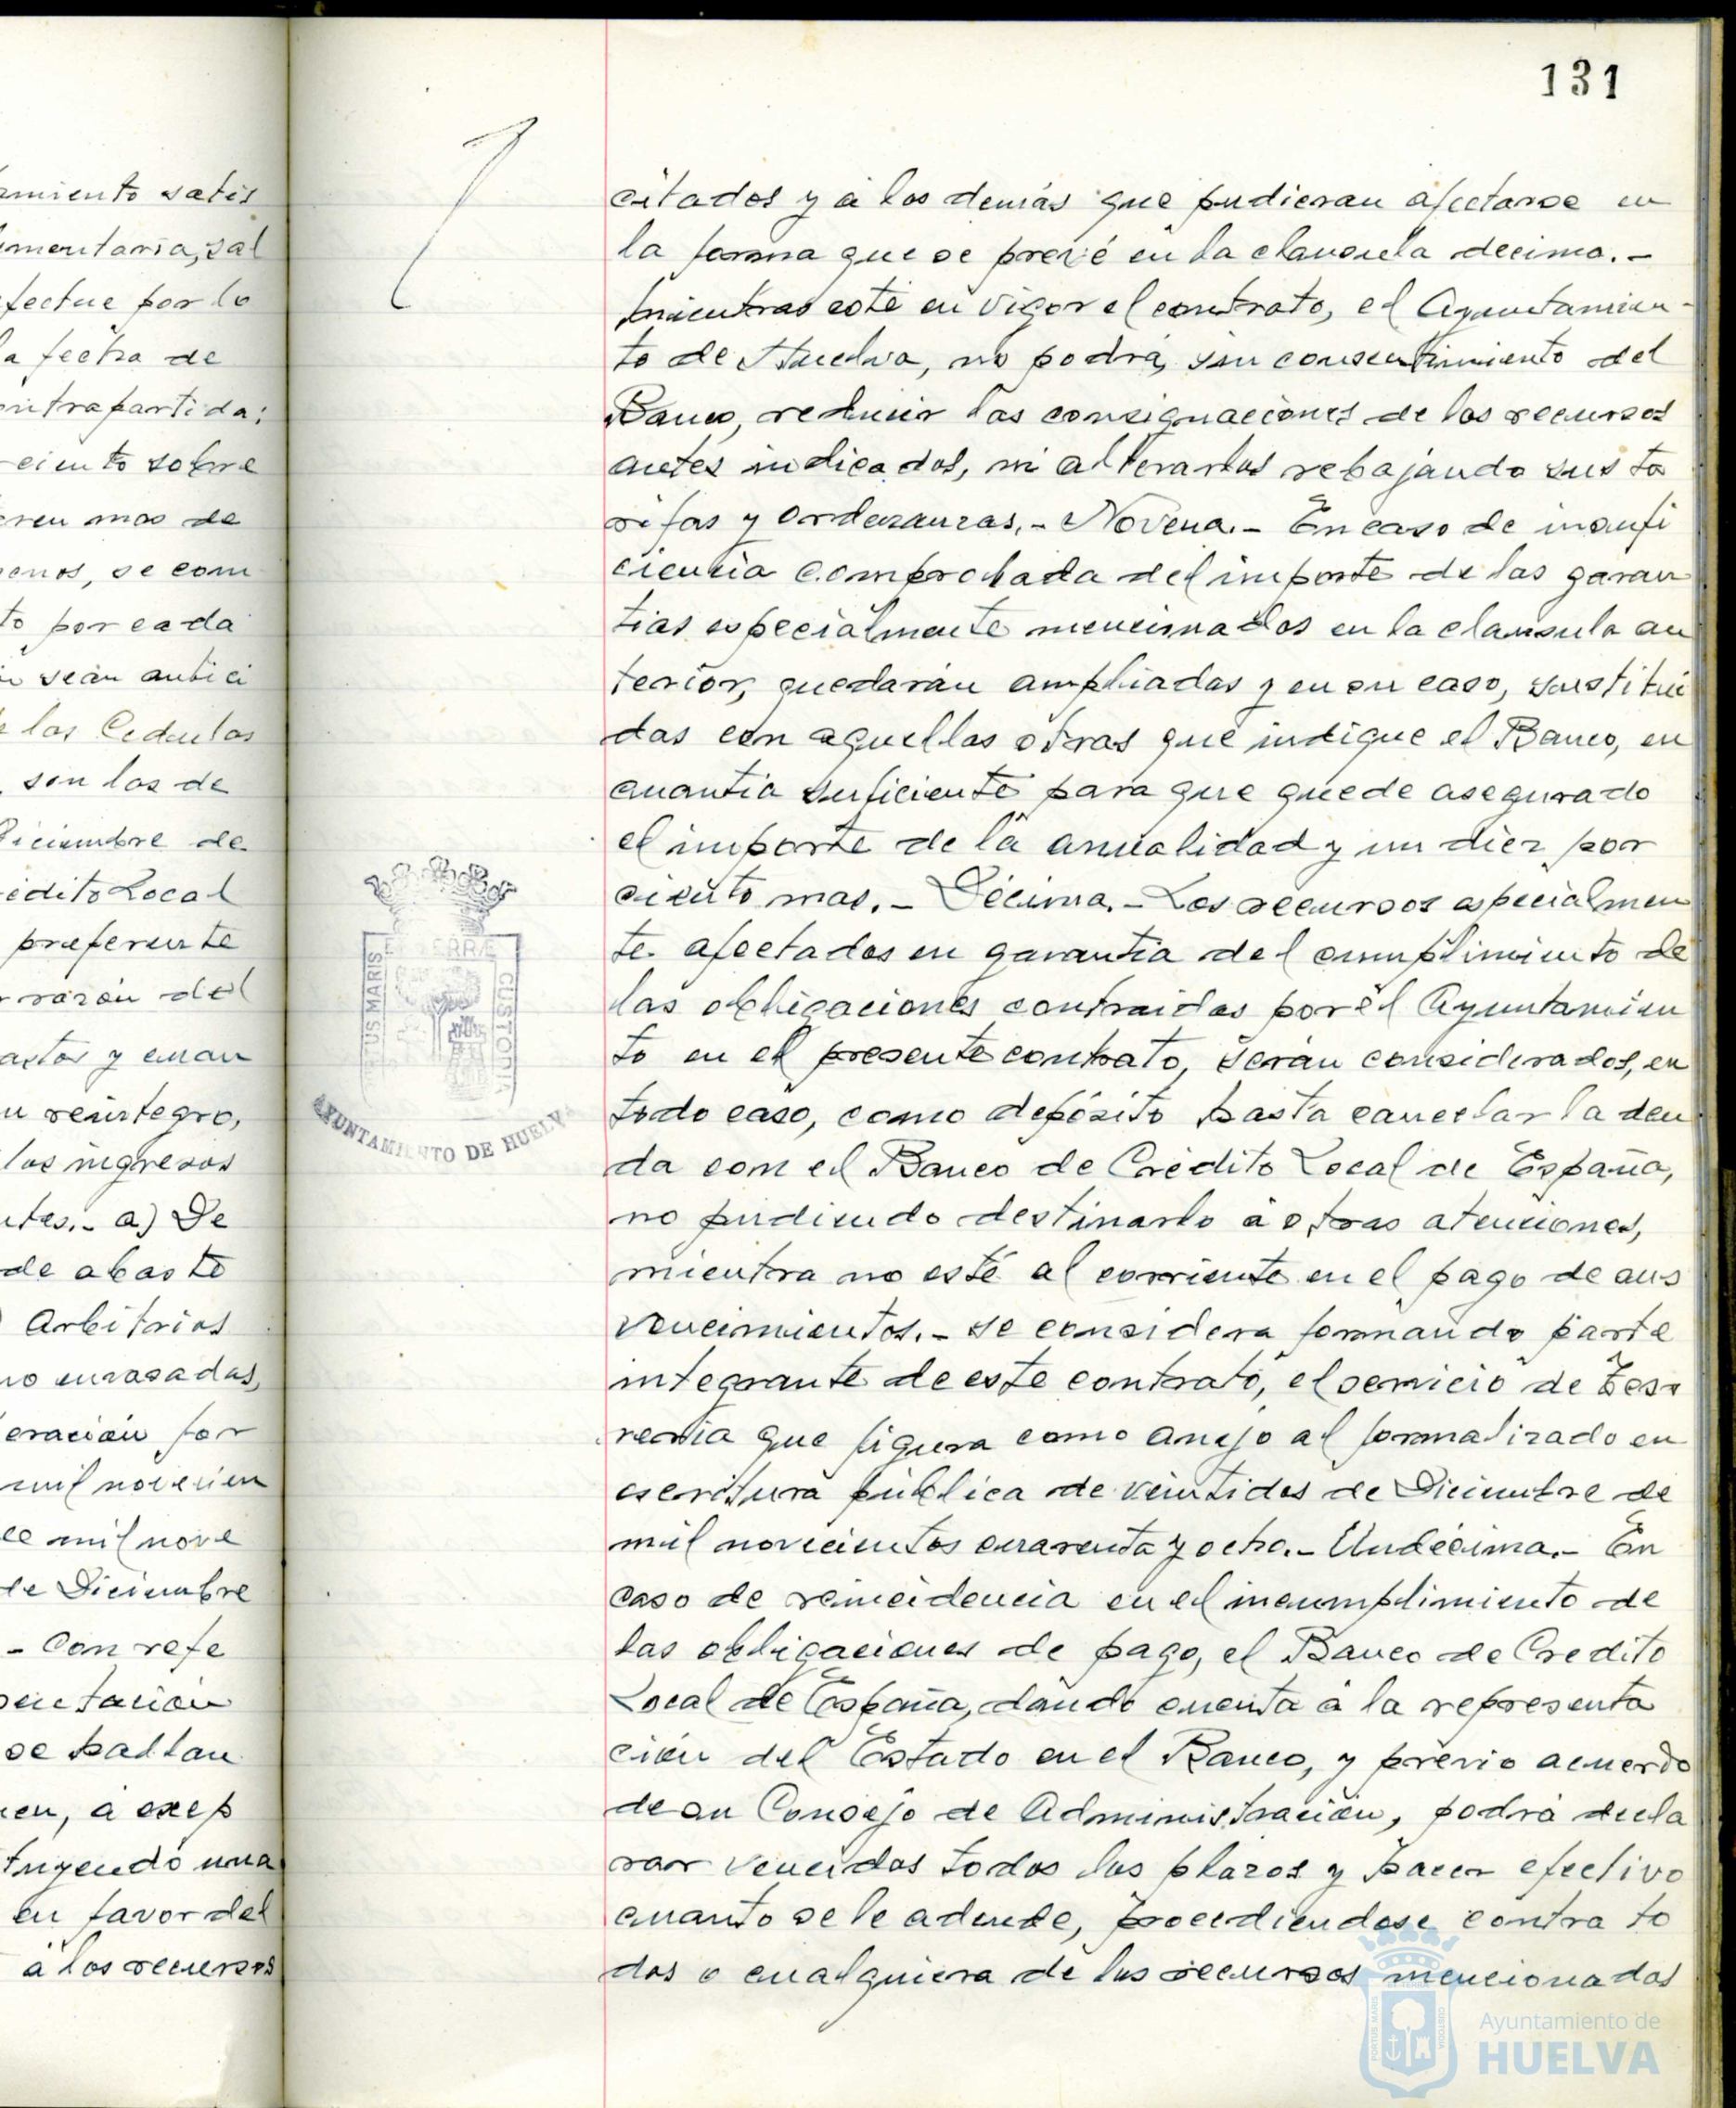 amiento satis
mentaria, sal
fectue por lo
a fecha de
ontrapartida:
ciento sobre
eren mas de
enos, se com
to por cada
sean antici
las Cedulas
son los de
Diciembre de
édito Local
preferente
razón del
astos y cuan
reintegro,
los ingresos
ntes.- a) De
de abasto
Arbitrios
no envasadas,
eración for
mil novecien
ce mil nove
de Diciembre
- Con refe
sentación
se hallan
en, a exep
tuyendo una
en favor del
a los recursos
131
citados y a los demás que pudieran afectarse en
la forma que se prevé en la clausula decima.-
Mientras esté en vigor el contrato, el Ayuntamien-
to de Huelva, no podrá, sin consentimiento del
Banco, reducir las consignaciones de los recursos
antes indicados, ni alterarlos rebajando sus ta
rifas y ordenanzas.- Novena.- En caso de insufi
ciencia comprobada del importe de las garan
tias especialmente mencionadas en la clausula an
terior, quedarán ampliadas y en su caso, sustitui
das con aquellas otras que indique el Banco, en
cuantia suficiente para que quede asegurado
el importe de la anualidad y un diez por
ciento mas.- Décima.- Los recursos especialmen
te afectados en garantia del cumplimiento de
las obligaciones contraidas por el Ayuntamien
to en el presente contrato, serán considerados, en
todo caso, como depósito hasta cancelar la deu
da con el Banco de Crédito Local de España,
no pudiendo destinarlo a otras atenciones,
mientra no esté al corriente en el pago de sus
vencimientos.- Se considera formando parte
integrante de este contrato, el servicio de Teso
reria que figura como anejo al formalizado en
escritura pública de veintidos de Diciembre de
mil novecientos cuarenta y ocho.- Undécima.- En
caso de reincidencia en el incumplimiento de
las obligaciones de pago, el Banco de Credito
Local de España, dando cuenta a la representa
ción del Estado en el Banco, y previo acuerdo
de su Consejo de Administración, podrá decla
rar vencidos todos los plazos y hacer efectivo
cuanto se le adeude, procediendose contra to
dos o cualquiera de los recursos mencionados
PORTUS MARIS
ET TERRÆ
CUSTODIA
AYUNTAMIENTO DE HUELVA
Ayuntamiento de
HUELVA